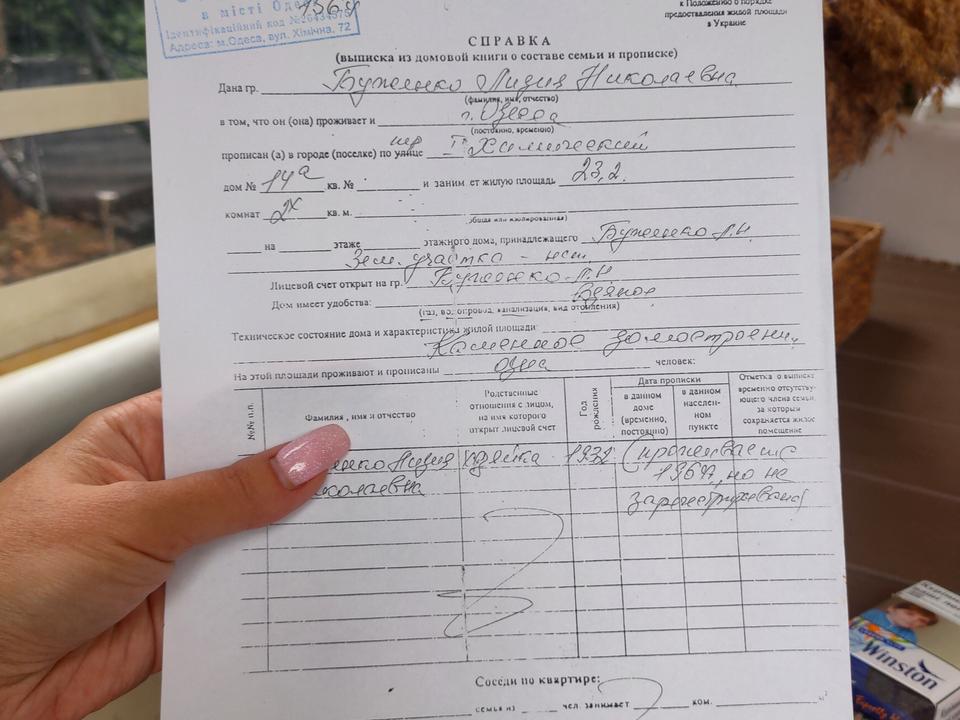 в місті Оде
Ідентифікаційний код №26434575
Адреса: м.Одеса, вул. Хімічна, 72
к Положению о порядке
предоставления жилой площади
в Украине
СПРАВКА
(выписка из домовой книги о составе семьи и прописке)
Дана гр. Буженко Лидия Николаевна
(фамилия, имя, отчество)
в том, что он (она) проживает и г. Одесса
(постоянно, временно)
прописан (а) в городе (поселке) по улице пер Химический
дом № 14а кв. № и заним ет жилую площадь 23,2.
комнат 2х кв. м.
(общая или изолированная)
на этаже этажного дома, принадлежащего Буженко Л.Н.
Зем. участка - нет.
Лицевой счет открыт на гр. Буженко Л.Н
Дом имеет удобства:
(газ, водопровод, канализация, вид отопления)
Техническое состояние дома и характеристика жилой площади:
Каменное домостроени.
На этой площади проживают и прописаны одна человек:
№№ п.п.
Фамилия, имя и отчество
Родственные отношения с лицом, на имя которого открыт лицевой счет
Год рождения
Дата прописки
в данном доме (временно, постоянно)
в данном населенном пункте
Отметка о выписке временно отсутствующего члена семьи, за которым сохраняется жилое помещение
енко Лидия хозяйка 1932 (проживает с
колаевна 1964, но не
зарегистрирована)
Соседи по квартире:
семья из чел. занимает ком. м²
Winston